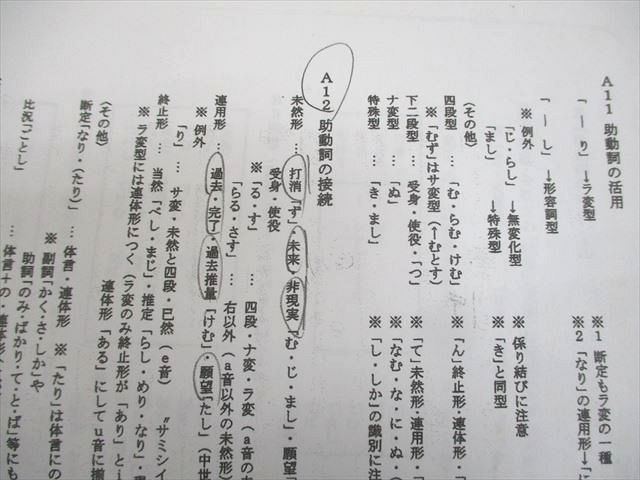 A11 助動詞の活用
「ーり」→ラ変型 ※1 断定もラ変の一種
※2「なり」の連用形→「に
「ーし」→形容詞型
※ 例外
「じ・らし」→無変化型 ※ 係り結びに注意
「まし」 →特殊型 ※「き」と同型
(その他)
四段型 … 「む・らむ・けむ」 ※「ん」終止形・連体形・「
※「むず」はサ変型(ーむとす)
下二段型 … 受身・使役・「つ」 ※「て」未然形・連用形・「
ナ変型 … 「ぬ」 ※「なむ・な・に・ぬ・(
特殊型 … 「き・まし」 ※「し・しか」の識別に注
A12 助動詞の接続
未然形 … 打消「ず」・未来、非現実「む・じ・まし」・願望「
受身・使役
※「る・す」 … 四段・ナ変・ラ変(a音の
「らる・さす」 … 右以外(a音以外の未然形)
連用形 … 過去・完了・過去推量「けむ」・願望「たし」(中世
※ 例外
「り」… サ変・未然と四段・已然(e音) “サミシイ
終止形 … 当然「べし・まじ」・推定「らし・めり・なり」・
※ ラ変型には連体形につく(ラ変のみ終止形が「あり」とi
連体形「ある」にしてu音に揃
(その他)
断定「なり・(たり)」… 体言・連体形 ※「たり」は体言にの
※ 副詞「かく・さ・しか」や
助詞「のみ・ばかり・て・と・ば」等にも
比況「ごとし」 … 体言+の・連体形